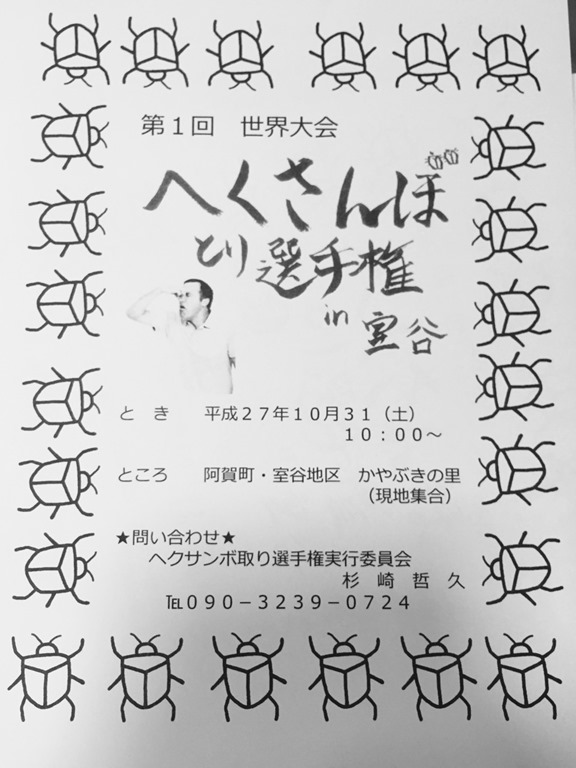 第１回　世界大会
へくさんぼ
とり選手権
in 室谷
と　き　　平成２７年１０月３１（土）
１０：００～
ところ　　阿賀町・室谷地区　かやぶきの里
（現地集合）
★問い合わせ★
ヘクサンボ取り選手権実行委員会
杉　崎　哲　久
℡０９０－３２３９－０７２４